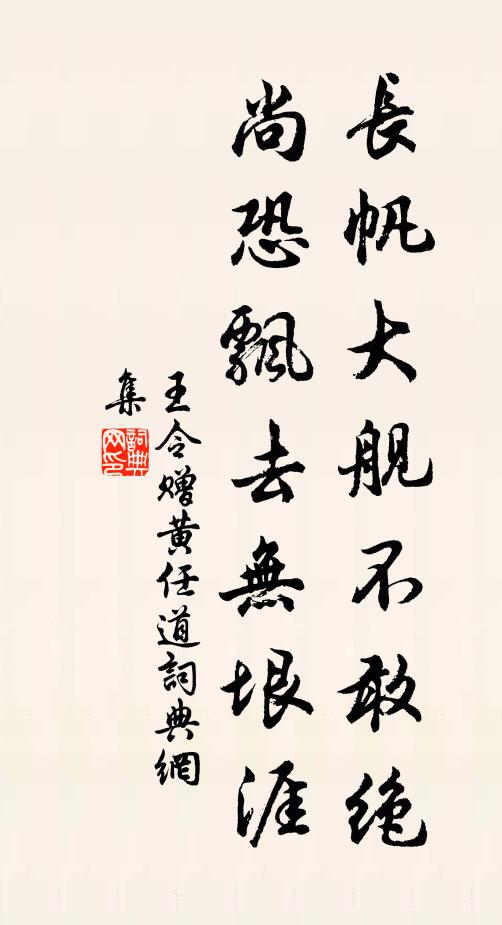 長帆大舰不敢绝
尚恐飄去無垠涯
王令赠黄任道詞典網
集
詞典
网印